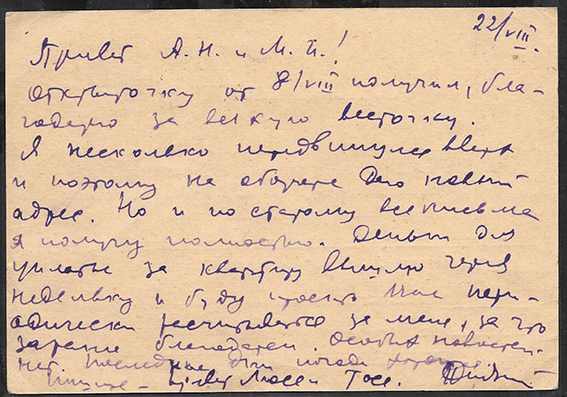 22/VIII.
Привет А. Н. и М. П.!
Открыточку от 8/VIII получил, бла-
годарю за всякую весточку.
Я несколько передвинулся вверх
и поэтому на обороте даю новый
адрес. Но и по старому все письма
я получу полностью. Деньги для
уплаты за квартиру вышлю через
недельку и буду просить Вас пери-
одически рассчитываться за меня, за что
заранее благодарен. Особых новостей
нет. Последние дни погода хорошая.
Пишите - привет Люсе и Тосе.